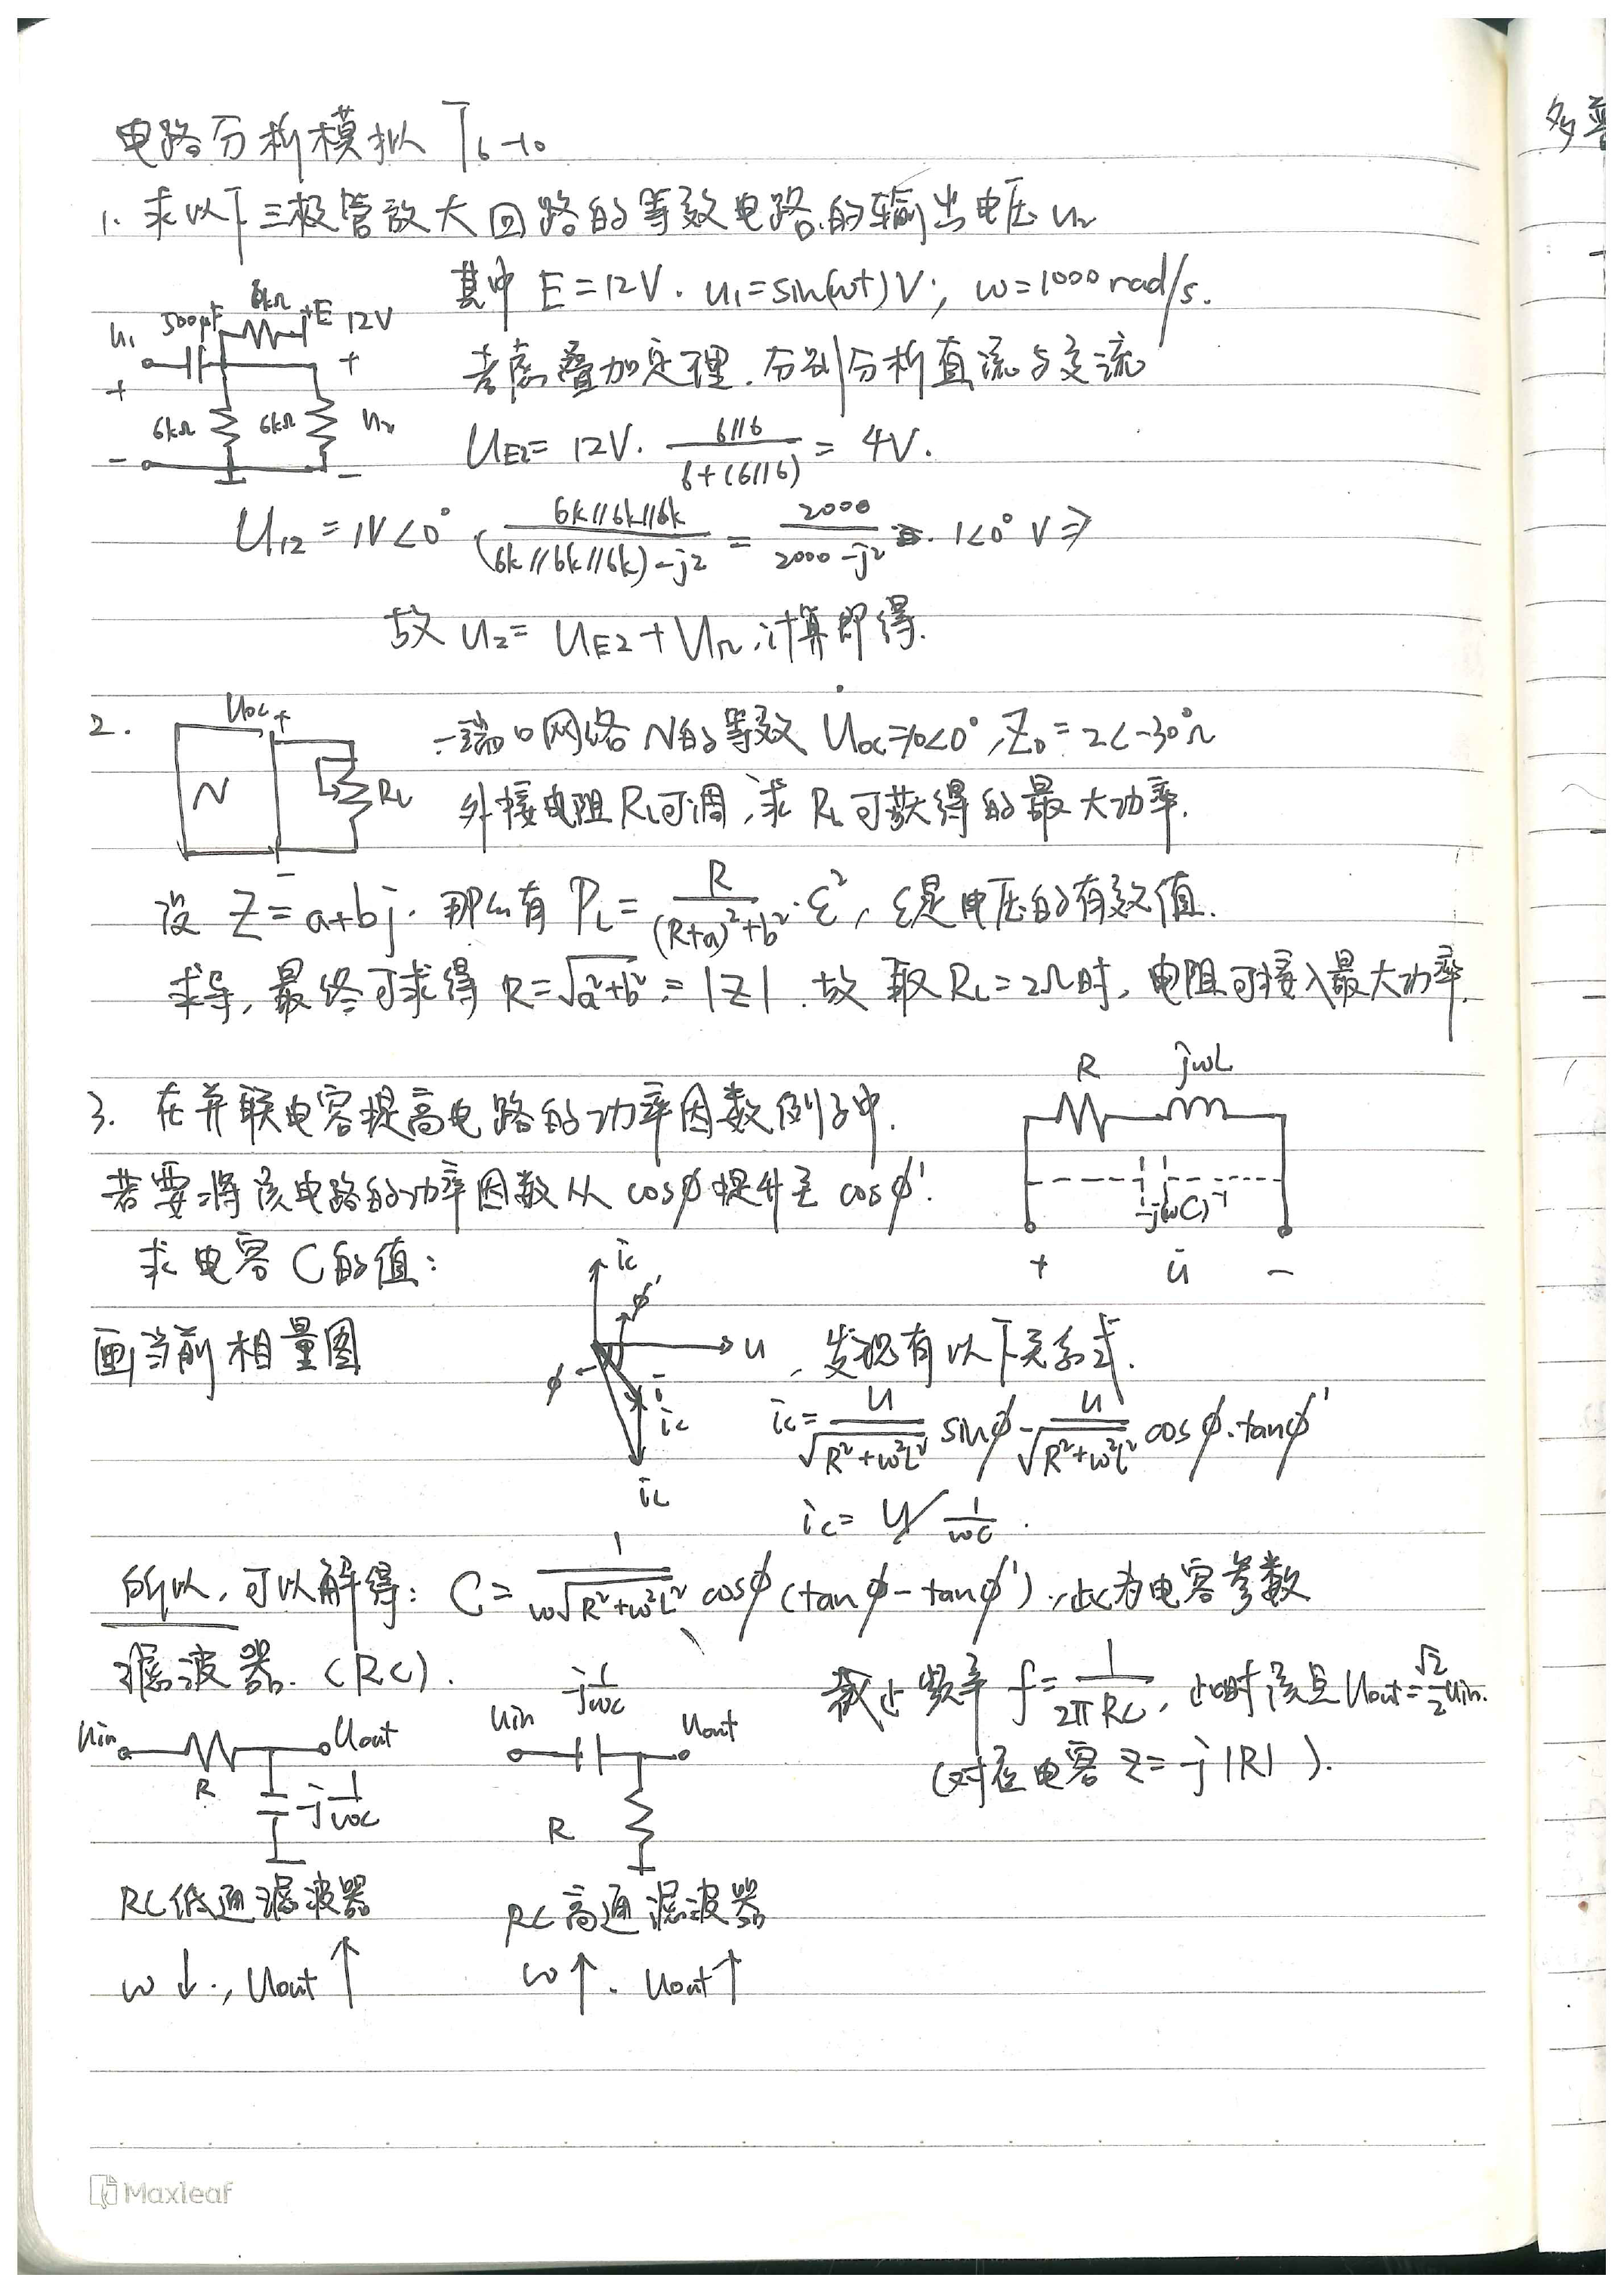 电路分析模拟 T6-10
1. 求以下三极管放大回路的等效电路的输出电压 u₂
其中 E=12V. u₁=sin(ωt)V; ω=1000 rad/s.
u₁ 500μF 6kΩ +E 12V
+ +
6kΩ 6kΩ u₂
- -
考虑叠加定理. 分别分析直流与交流
U_E2= 12V· (6//6)/(6+(6//6)) = 4V.
U₁₂ = 1V∠0° · (6k//6k//6k)/((6k//6k//6k)-j2) = 2000/(2000-j2) · 1∠0° V ⇒
故 U₂= U_E2+U₁₂, 计算即得.
2. Uoc + N R_L -
一端口网络 N的等效 U̇oc=10∠0°, Z₀=2∠-30°Ω
外接电阻 R_L可调, 求 R_L 可获得的最大功率.
设 Z=a+bj. 那么有 P_L= R/((R+a)²+b²)·ε², ε是电压的有效值.
求导, 最终可求得 R=√(a²+b²)=|Z|. 故 取 R_L=2Ω时, 电阻可接入最大功率.
R jωL
3. 在并联电容提高电路的功率因数例子中.
若要将该电路的功率因数从 cosφ 提升至 cosφ'.
-j(ωC)⁻¹
求电容 C的值:
+ u̇ -
画当前相量图
ic φ' u φ i ic i_L
, 发现有以下关系式.
ic= U/√(R²+ω²L²) sinφ - U/√(R²+ω²L²) cosφ·tanφ'
ic= U/ 1/ωC .
所以, 可以解得: C= 1/(ω√(R²+ω²L²)) cosφ (tanφ-tanφ'), 此为电容参数
滤波器. (RC).
截止频率 f=1/(2πRC), 此时该点 Uout=√2/2 Uin.
(对应电容 Z=-j|R|).
Uin R Uout -j 1/ωC
Uin -j 1/ωC Uout R
RC低通滤波器
RC高通滤波器
ω↓., Uout↑
ω↑. Uout↑
Maxleaf